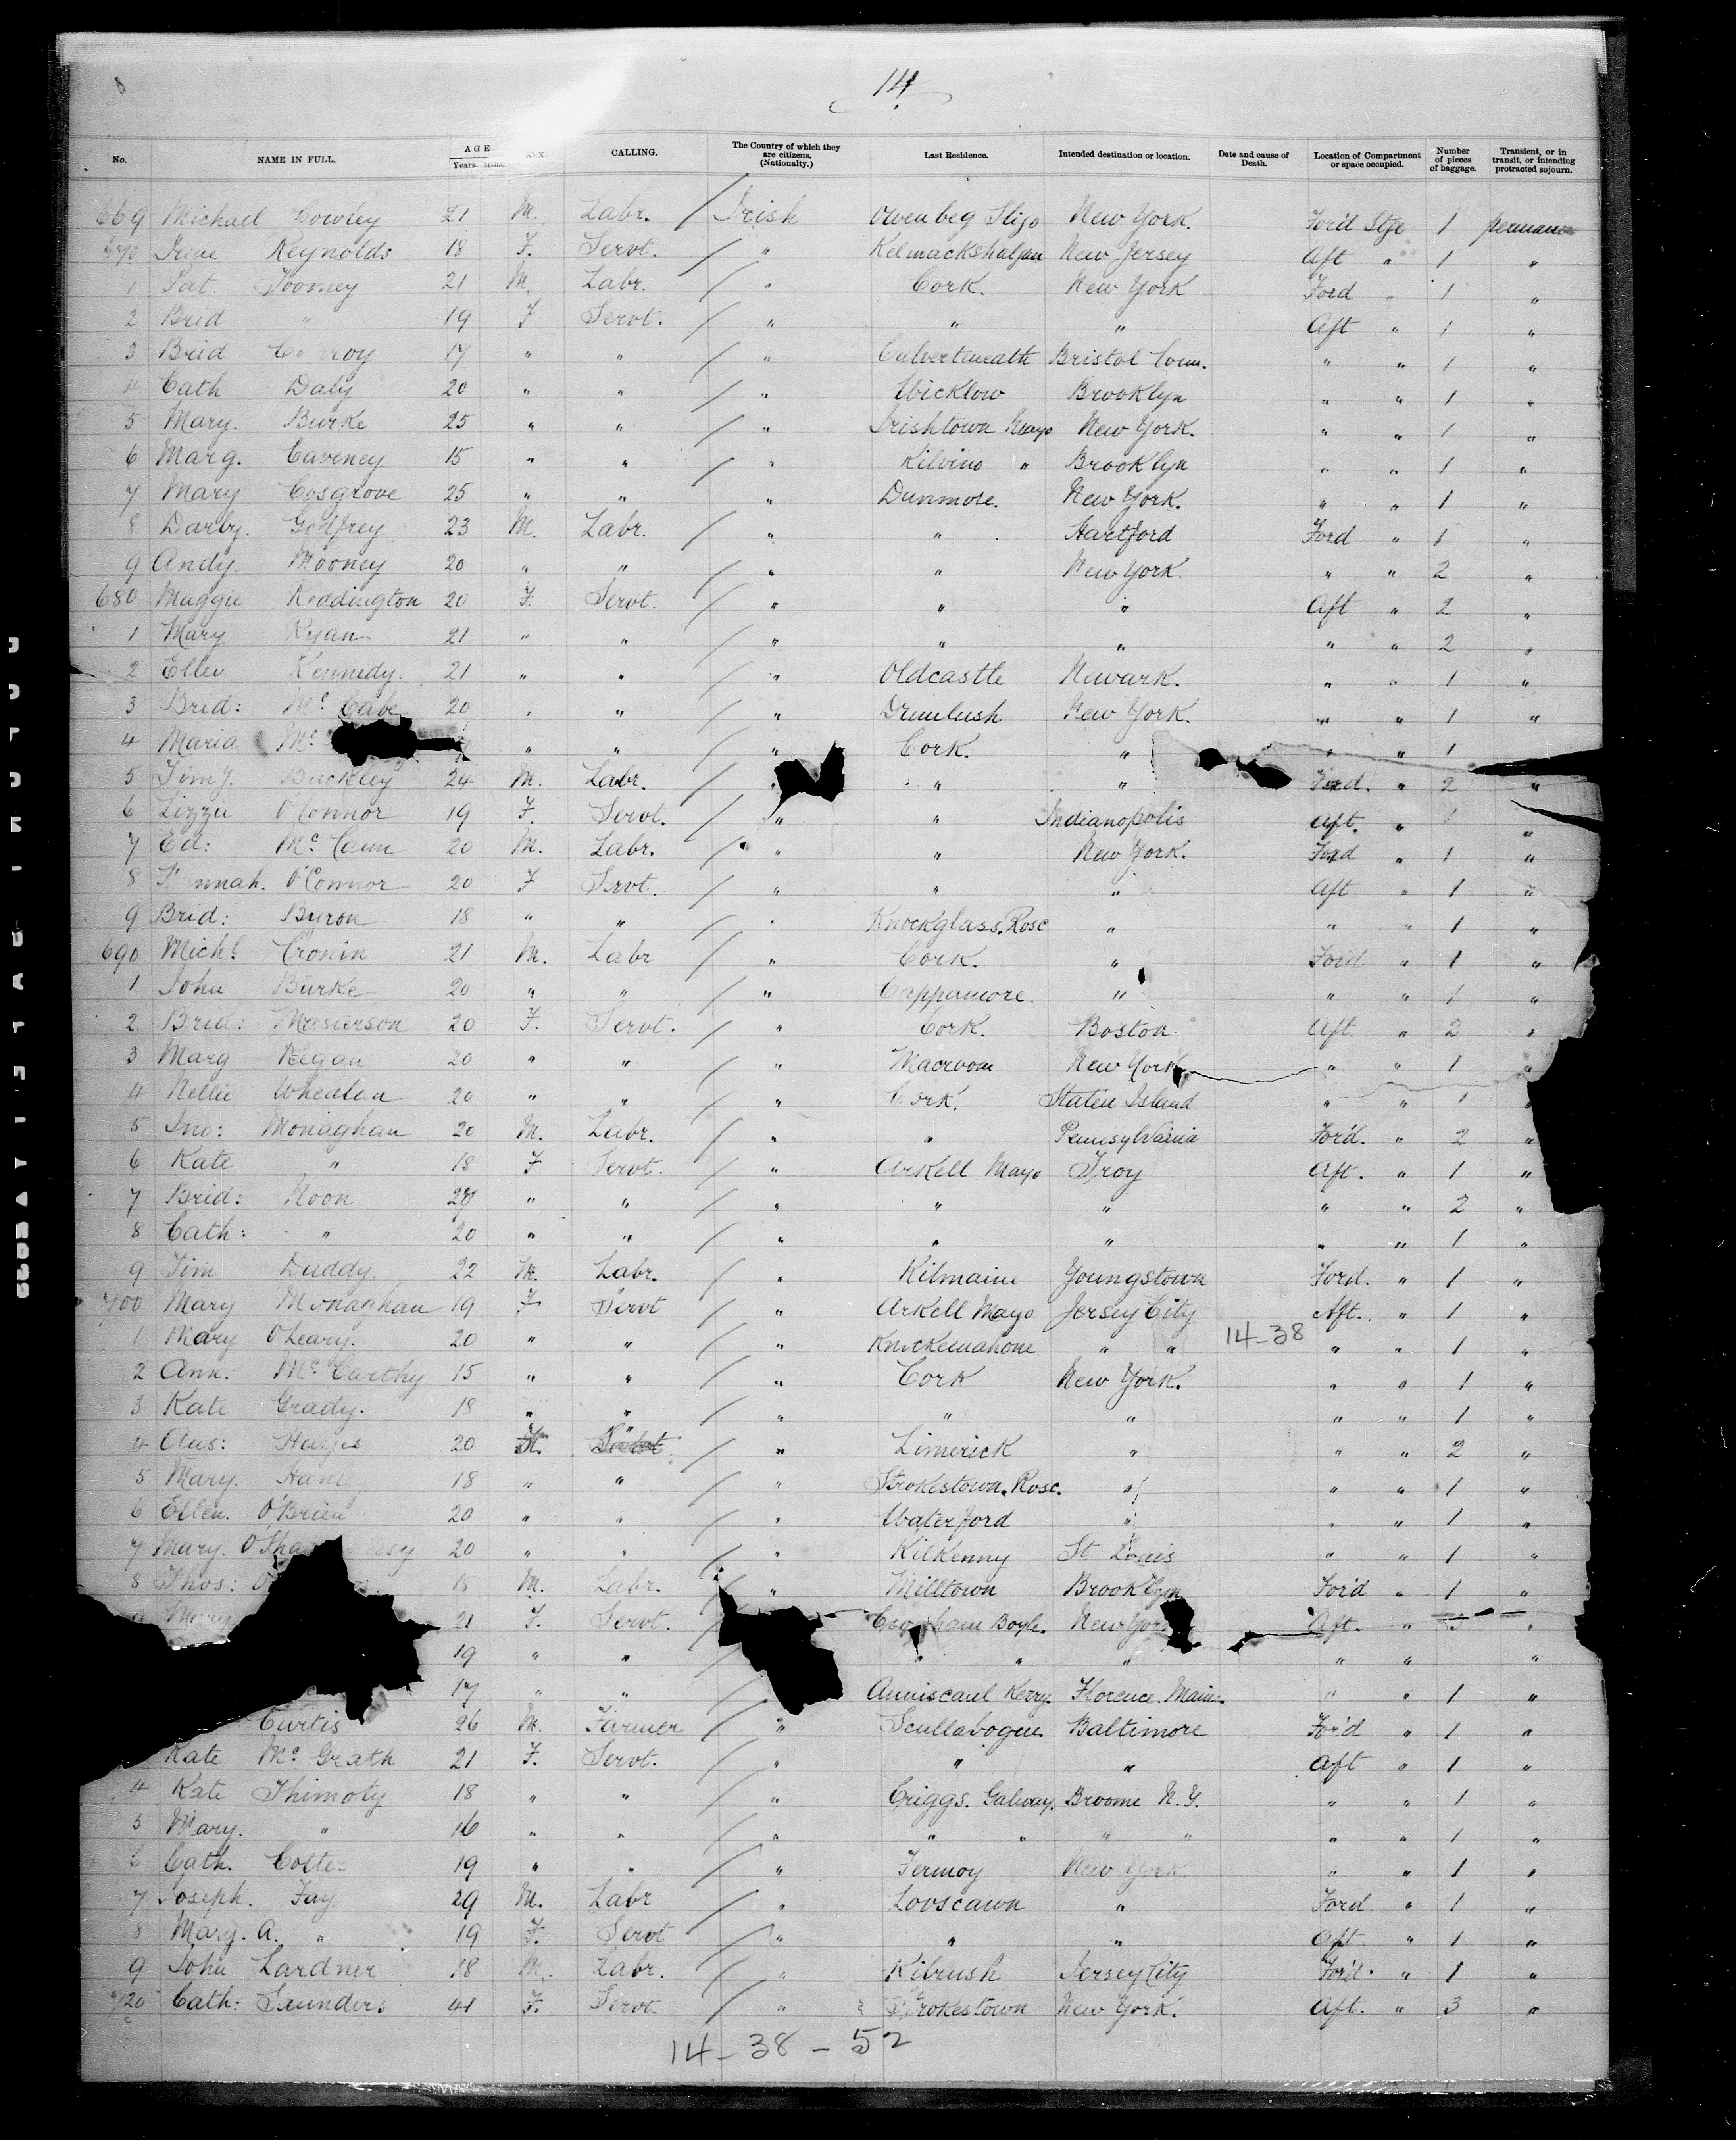 14
No. NAME IN FULL. AGE. Years. Mths. SEX. CALLING. The Country of which they are citizens. (Nationality.) Last Residence. Intended destination or location. Date and cause of Death. Location of Compartment or space occupied. Number of pieces of baggage. Transient, or in transit, or intending protracted sojourn.
669 Michael Cowley 21 M. Labr. / Irish Owenbeg Sligo New York. Ford Stge 1
670 Reynolds 18 F. Servt. / " New Jersey Aft " 1 "
1 Pat. Toomey 21 M. Labr. / " Cork. New York Ford " 1 "
2 Brid " 19 F Servt. / " " " Aft " 1 "
3 Brid 17 " " / " Bristol Conn. " " 1 "
4 Cath Daly 20 " " / " Wicklow Brooklyn " " 1 "
5 Mary. Burke 25 " " / " Irishtown Mayo New York. " " 1 "
6 Marg. Caveney 15 " " / " Kilvino " Brooklyn " " 1 "
7 Mary Cosgrove 25 " " / " Dunmore. New York. " " 1 "
8 Darby. Godfrey 23 M. Labr. / " " Hartford Ford " 1 "
9 Andy. Mooney 20 " " / " " New York. " " 2 "
680 Maggie Reddington 20 F. Servt. / " " " Aft " 2 "
1 Mary Ryan 21 " " / " " " " " 2 "
2 Ellen Kennedy. 21 " " / " Oldcastle Newark. " " 1 "
3 Brid: McCabe 20 " " / " New York. " " 1 "
4 Maria Mc " " / " Cork. " " " 1
5 Timy. Buckley 24 M. Labr. / " " " Ford. " 2 "
6 Lizzie O'Connor 19 F. Servt. / " " Indianopolis Aft. " 1 "
7 Ed: McCann 20 M. Labr. / " " New York. Ford " 1 "
8 Hannah. O'Connor 20 F Servt. / " " " Aft " 1 "
9 Brid: Byron 18 " " / " Knockglass, Rosc " " " 1 "
690 Michl. Cronin 21 M. Labr / " Cork. " Ford " 1 "
1 John Burke 20 " " / " Cappamore. " " " 1 "
2 Brid: Masterson 20 F. Servt. / " Cork. Boston Aft. " 2 "
3 Marg Regan 20 " " / " Macroom New York " " 1 "
4 Nellie Wheaton 20 " " / " Cork. Staten Island " " 1 "
5 Jno: Monaghan 20 M. Labr. / " " Pennsylvania Ford. " 2 "
6 Kate " 18 F Servt. / " Arkell Mayo Troy Aft. " 1 "
7 Brid: Noon " " / " " " " " 2 "
8 Cath: " 20 " " / " " " " " 1 "
9 Tim Duddy. 22 M. Labr. / " Kilmaine Youngstown Ford. " 1 "
700 Mary Monaghan 19 F Servt / " Arkell Mayo Jersey City Aft. " 1 "
1 Mary O'Leary. 20 " " / " " " 14-38 " " 1 "
2 Ann. McCarthy 15 " " / " Cork New York. " " 1 "
3 Kate Grady. 18 " " / " " " " " 1 "
4 Aus: Hayes 20 / " Limerick " " " 2 "
5 Mary. 18 " " / " Strokestown, Rosc. " " " 1 "
6 Ellen. O'Brien 20 " " / " Waterford " " " 1 "
7 Mary. 20 " " / " Kilkenny St Louis " " 1 "
8 Thos: O 18 M. Labr. / " Milltown Brooklyn Ford " 1 "
9 Mary 21 F. Servt. Boyle. New York Aft. " "
19 " " / " " " " " "
17 " " / Kerry. Florence. " " 1 "
Curtis 26 M. Farmer / " Scullabogue Baltimore Ford " 1 "
Kate McGrath 21 F. Servt. / " " " Aft " 1 "
4 Kate Thimoty 18 " " / " Criggs. Galway. Broome N.Y. " " 1 "
5 Mary. " 16 " " / " " " " " " " 1 "
6 Cath. Cotter 19 " " / " Fermoy New York " " 1 "
7 Joseph. Fay 29 M. Labr / " Lovscawn " Ford " 1 "
8 Mary. A. " 19 F. Servt / " " " Aft. " 1 "
9 John Lardner 18 M. Labr. / " Kilrush Jersey City Ford. " 1 "
720 Cath: Saunders 41 F. Servt. / " Strokestown New York. Aft. " 3 "
14-38-52